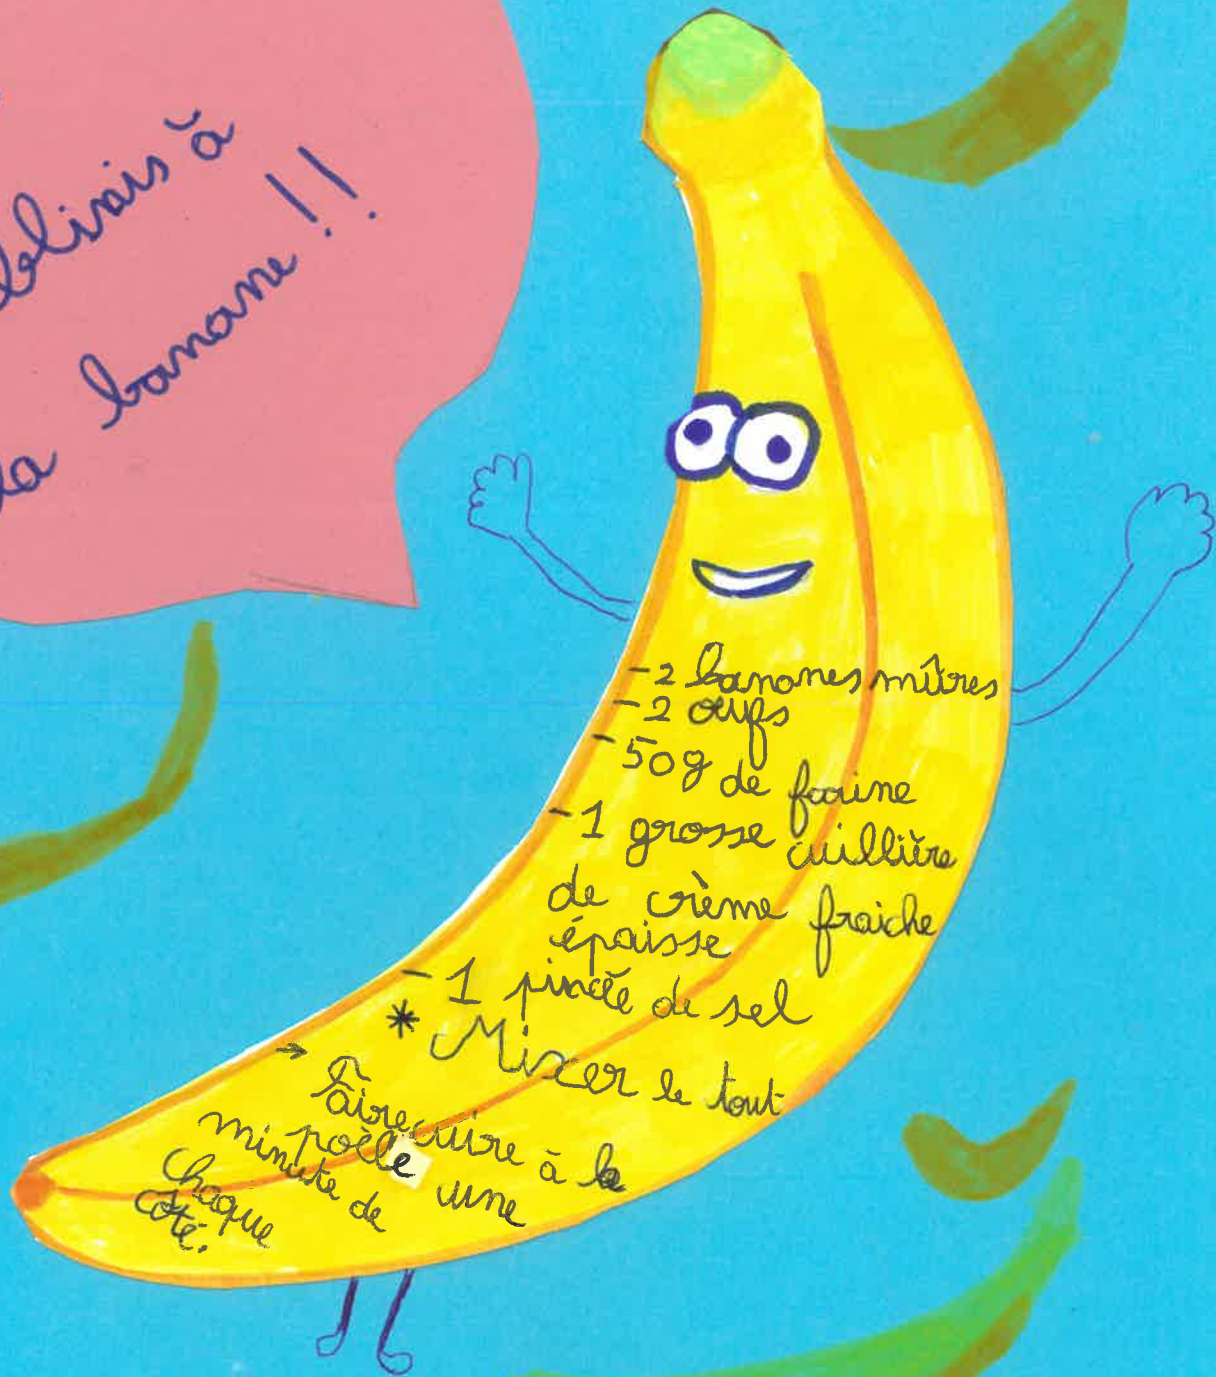 à
banane !!
la
-2 bananes mûres
-2 œufs
-50g de farine
-1 grosse cuillière
de crème fraiche
épaisse
-1 pincée de sel
* Mixer le tout
→ Faire cuire à la
poële une
minute de
chaque
côté.